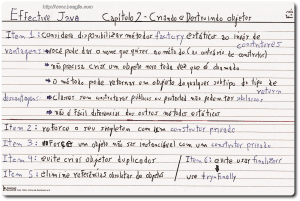 Effective Java Capítulo 2 - Criando e Destruindo objetos
Item 1: Considera disponibilizar métodos factory estáticos ao invés de construtores
vantagens: você pode dar o nome que quiser ao método (ao contrário do construtor)
não precisa criar um objeto novo toda vez que é chamado
O método pode retornar um objeto de qualquer subtipo do tipo de retorno
desvantagens: Classes sem construtores públicos ou protected não podem ter subclasses
não é fácil diferenciar dos outros métodos estáticos
Item 2: reforce o seu singleton com um construtor privado
Item 3: Forçar um objeto não ser instanciável com um construtor privado
Item 4: evite criar objetos duplicados
Item 6: evite usar finalizers
Item 5: elimine referências obsoletas de objetos
use try-finally